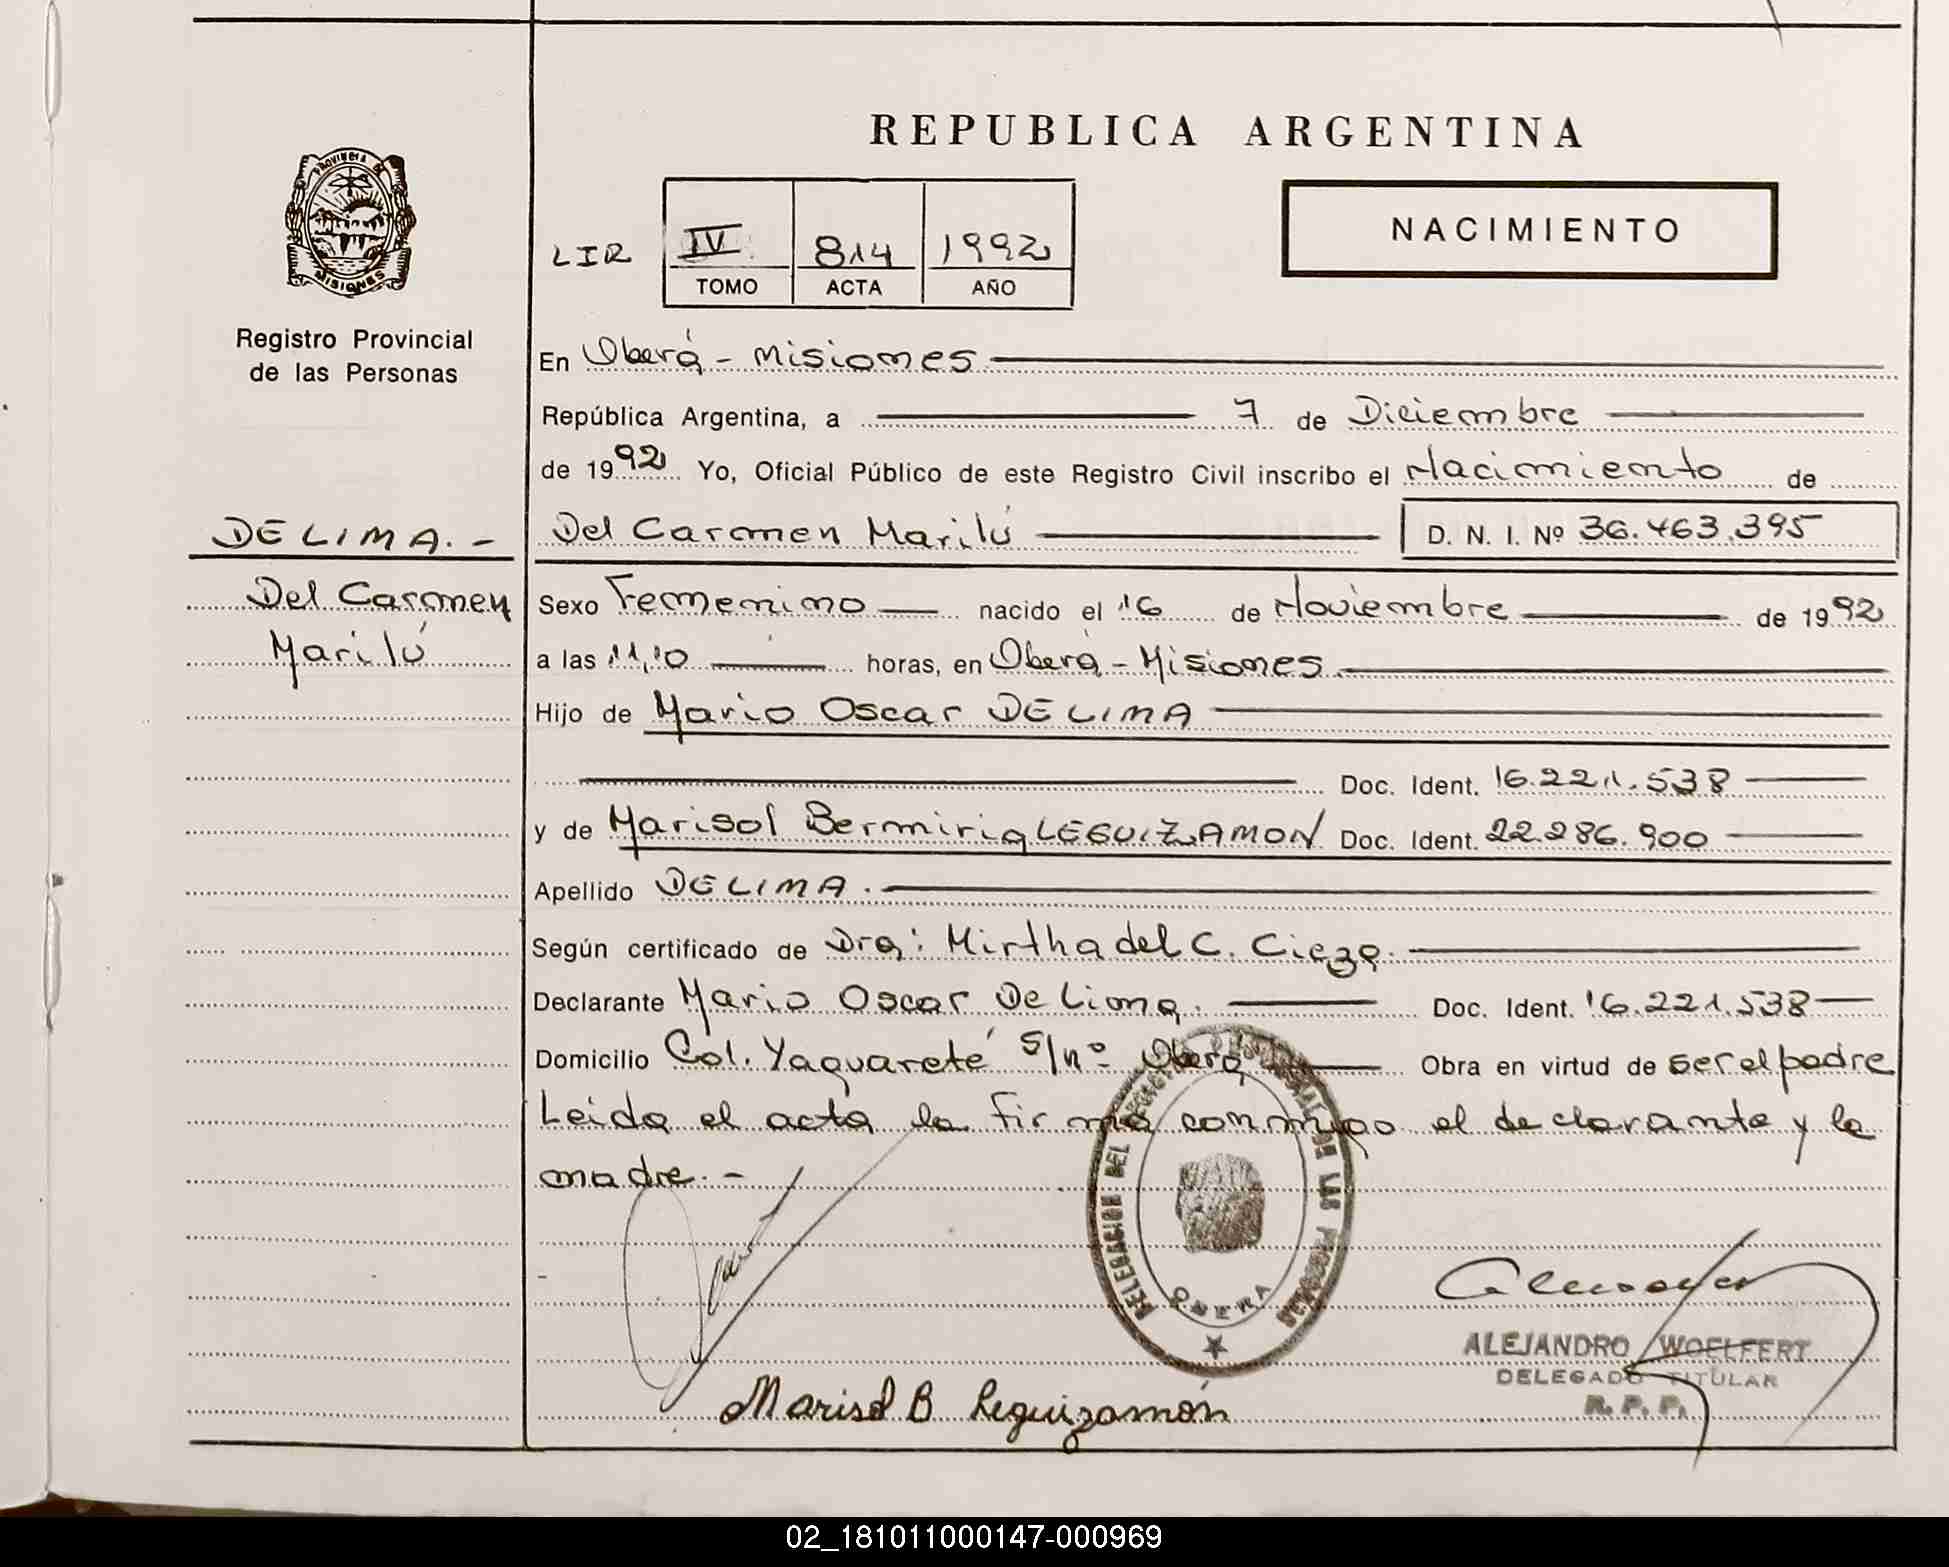 REPUBLICA ARGENTINA
PROVINCIA DE
MISIONES
Registro Provincial
de las Personas
NACIMIENTO
LIR IV 814 1992
TOMO ACTA AÑO
En Oberá - Misiones
República Argentina, a 7 de Diciembre
de 1992 Yo, Oficial Público de este Registro Civil inscribo el Nacimiento de
DE LIMA. -
Del Carmen Marilú D. N. I. Nº 36.463.395
Del Carmen
Marilú
Sexo Femenino nacido el 16 de Noviembre de 1992
a las 11,10 horas, en Oberá - Misiones
Hijo de Mario Oscar DE LIMA
Doc. Ident. 16.221.538
y de Marisol Bermiria LEGUIZAMON Doc. Ident. 22.286.900
Apellido DE LIMA.
Según certificado de Dra: Mirtha del C. Cieza.
Declarante Mario Oscar De Lima. Doc. Ident. 16.221.538
Domicilio Col. Yaguareté S/nº Oberá Obra en virtud de ser el padre
Leida el acta la firma conmigo el declarante y la
madre. -
DELEGACION DEL DE LAS PERSONAS
OBERA
ALEJANDRO WOELFERT
DELEGADO TITULAR
R. P. P.
Marisol B Leguizamón
02_181011000147-000969